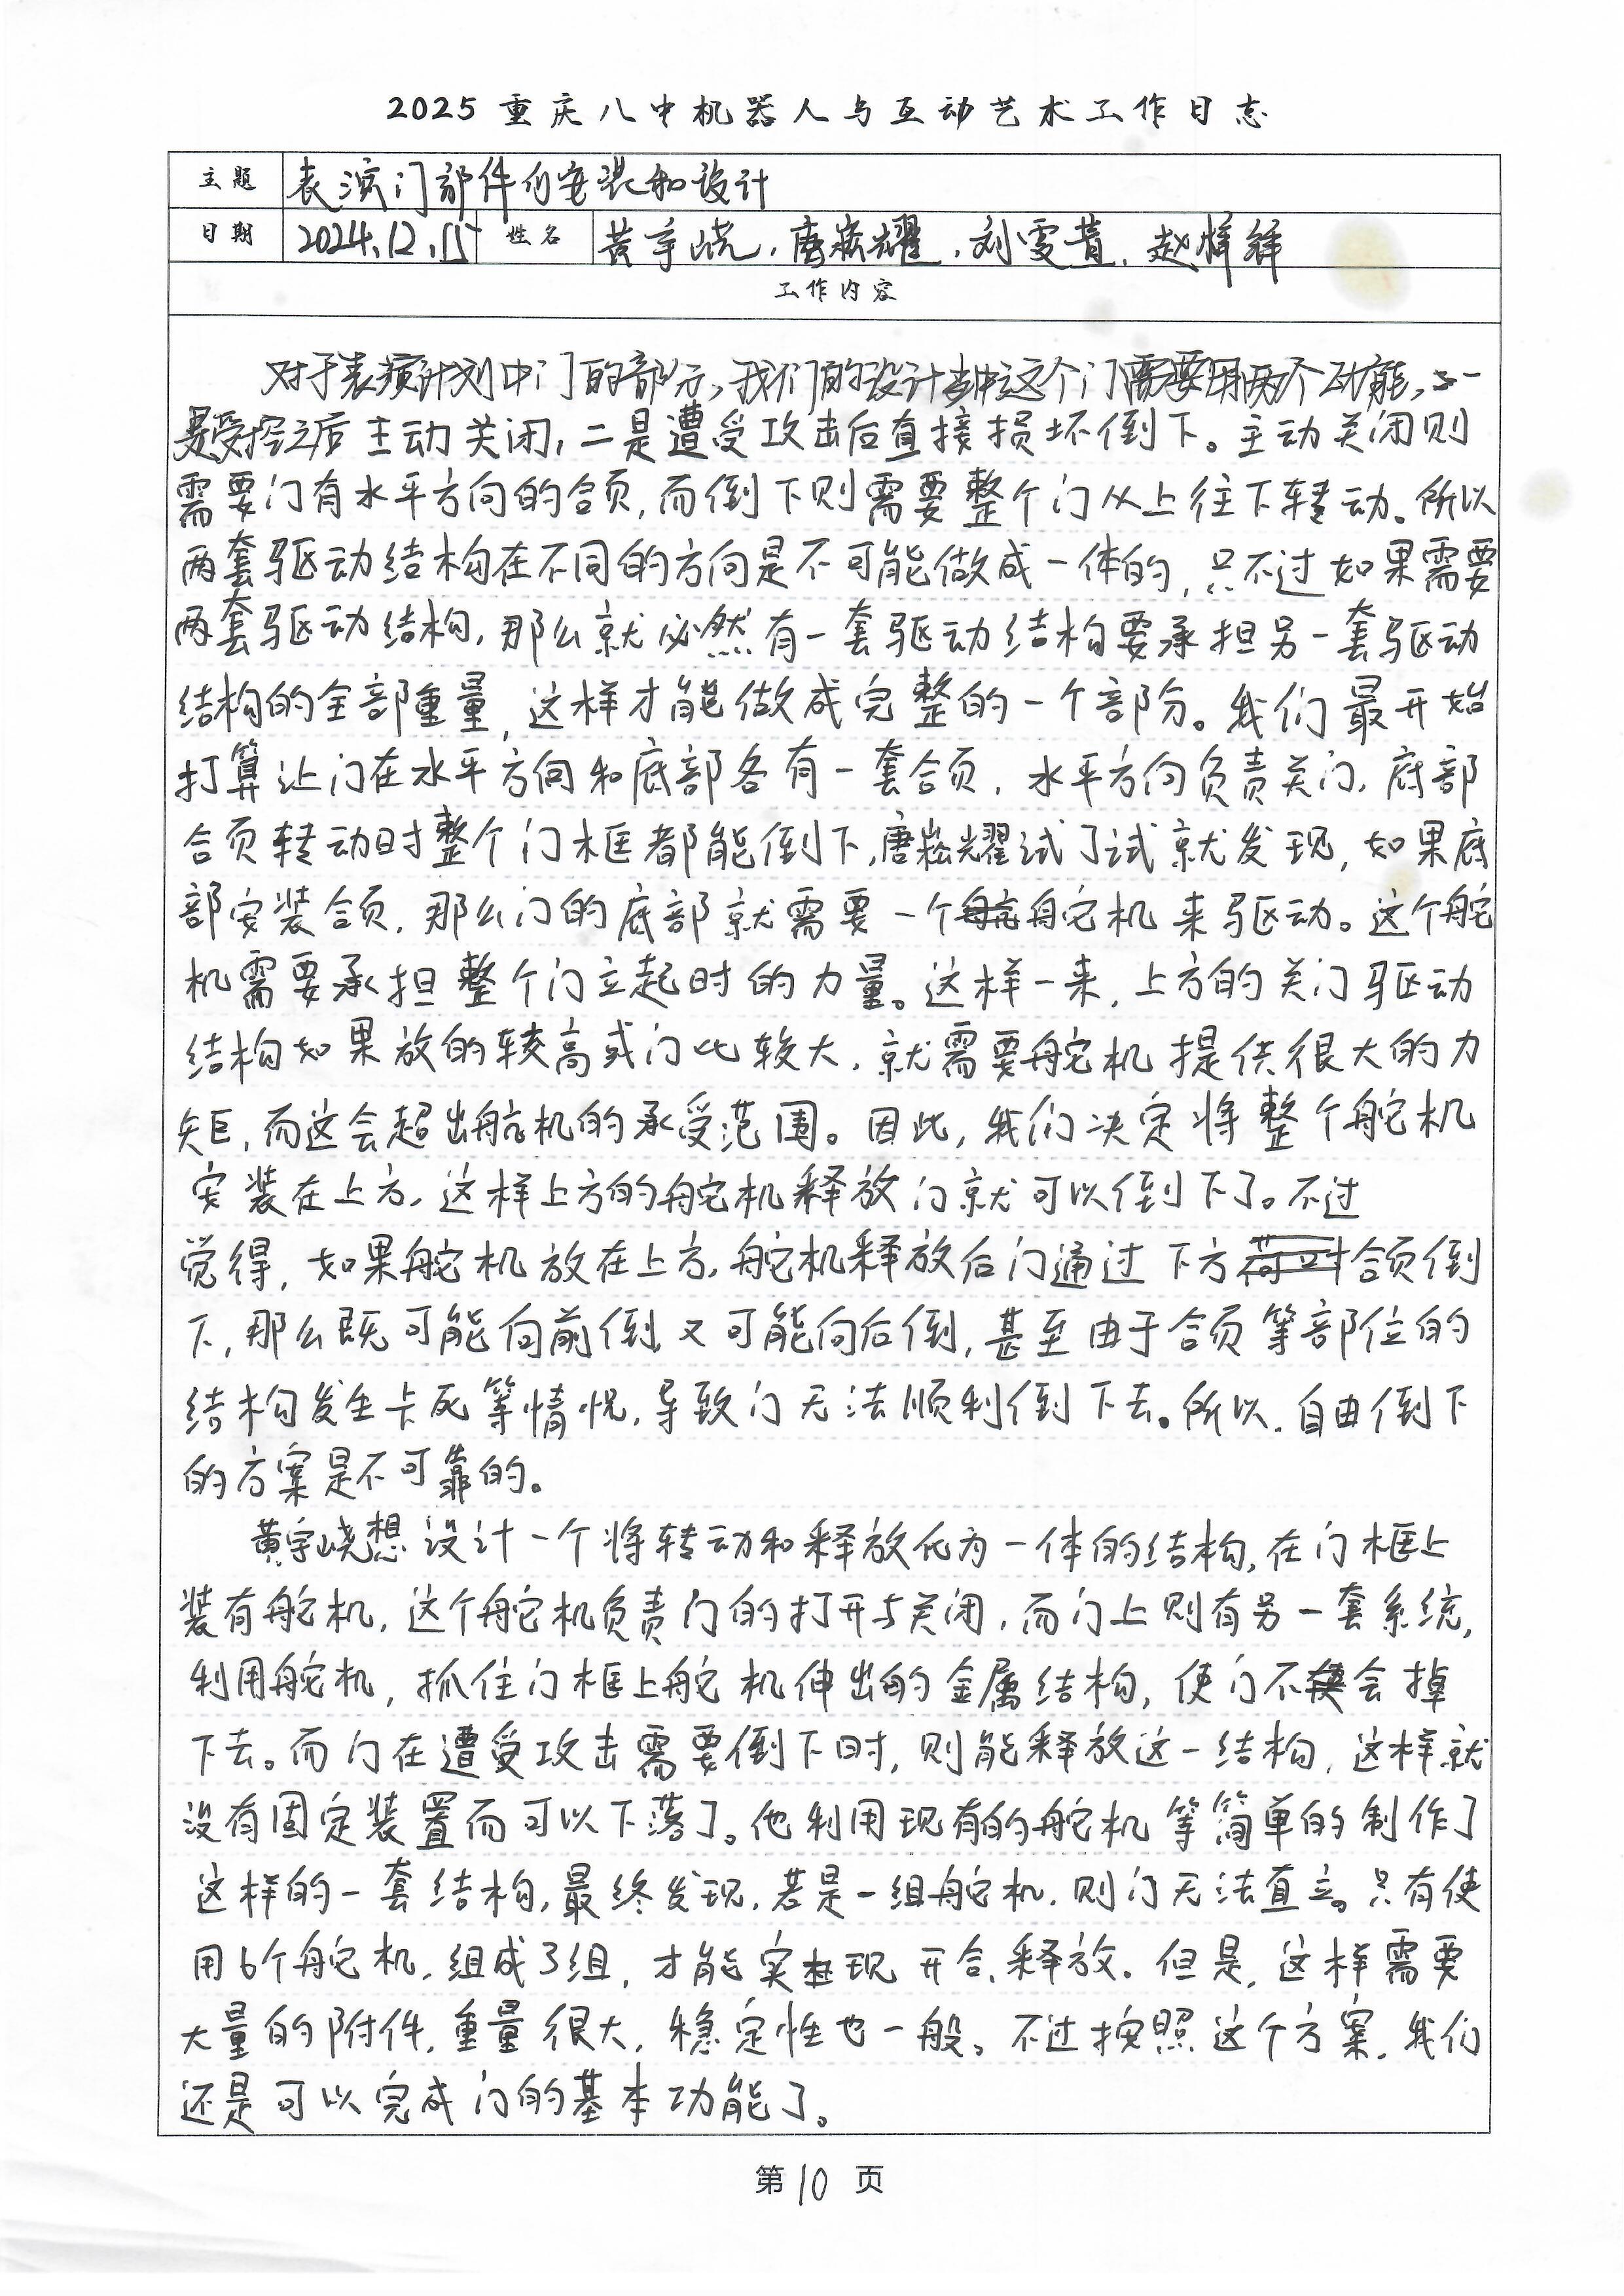 2025重庆八中机器人与互动艺术工作日志
主题 表演门部件的安装和设计
日期 2024.12.15 姓名 黄宇峣,唐崧耀,刘雯菁,赵梓
工作内容
对于表演计划中门的部分,我们的设计中这个门需要用两个功能,一
是受控之后主动关闭,二是遭受攻击后直接损坏倒下。主动关闭则
需要门有水平方向的合页,而倒下则需要整个门从上往下转动。所以
两套驱动结构在不同的方向是不可能做成一体的,只不过如果需要
两套驱动结构,那么就必然有一套驱动结构要承担另一套驱动
结构的全部重量,这样才能做成完整的一个部分。我们最开始
打算让门在水平方向和底部各有一套合页,水平方向负责关门,底部
合页转动时整个门框都能倒下,唐崧耀试了试就发现,如果底
部安装合页,那么门的底部就需要一个舵机来驱动。这个舵
机需要承担整个门立起时的力量。这样一来,上方的关门驱动
结构如果放的较高或门比较大,就需要舵机提供很大的力
矩,而这会超出舵机的承受范围。因此,我们决定将整个舵机
安装在上方,这样上方的舵机释放门就可以倒下了。不过
觉得,如果舵机放在上方,舵机释放后门通过下方合页倒
下,那么既可能向前倒,又可能向后倒,甚至由于合页等部位的
结构发生卡死等情况,导致门无法顺利倒下去。所以,自由倒下
的方案是不可靠的。
黄宇峣想设计一个将转动和释放化为一体的结构,在门框上
装有舵机,这个舵机负责门的打开与关闭,而门上则有另一套系统,
利用舵机,抓住门框上舵机伸出的金属结构,使门不会掉
下去。而门在遭受攻击需要倒下时,则能释放这一结构,这样就
没有固定装置而可以下落了。他利用现有的舵机等简单的制作了
这样的一套结构,最终发现,若是一组舵机,则门无法直立。只有使
用6个舵机,组成3组,才能实现开合、释放。但是,这样需要
大量的附件,重量很大,稳定性也一般。不过按照这个方案,我们
还是可以完成门的基本功能了。
第10页